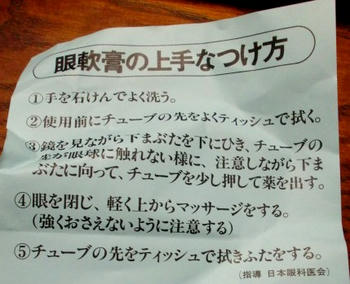 眼軟膏の上手なつけ方
①手を石けんでよく洗う。
②使用前にチューブの先をよくティッシュで拭く。
③鏡を見ながら下まぶたを下にひき、チューブの
先が眼球に触れない様に、注意しながら下ま
ぶたに向って、チューブを少し押して薬を出す。
④眼を閉じ、軽く上からマッサージをする。
(強くおさえないように注意する)
⑤チューブの先をティッシュで拭きふたをする。
(指導 日本眼科医会)